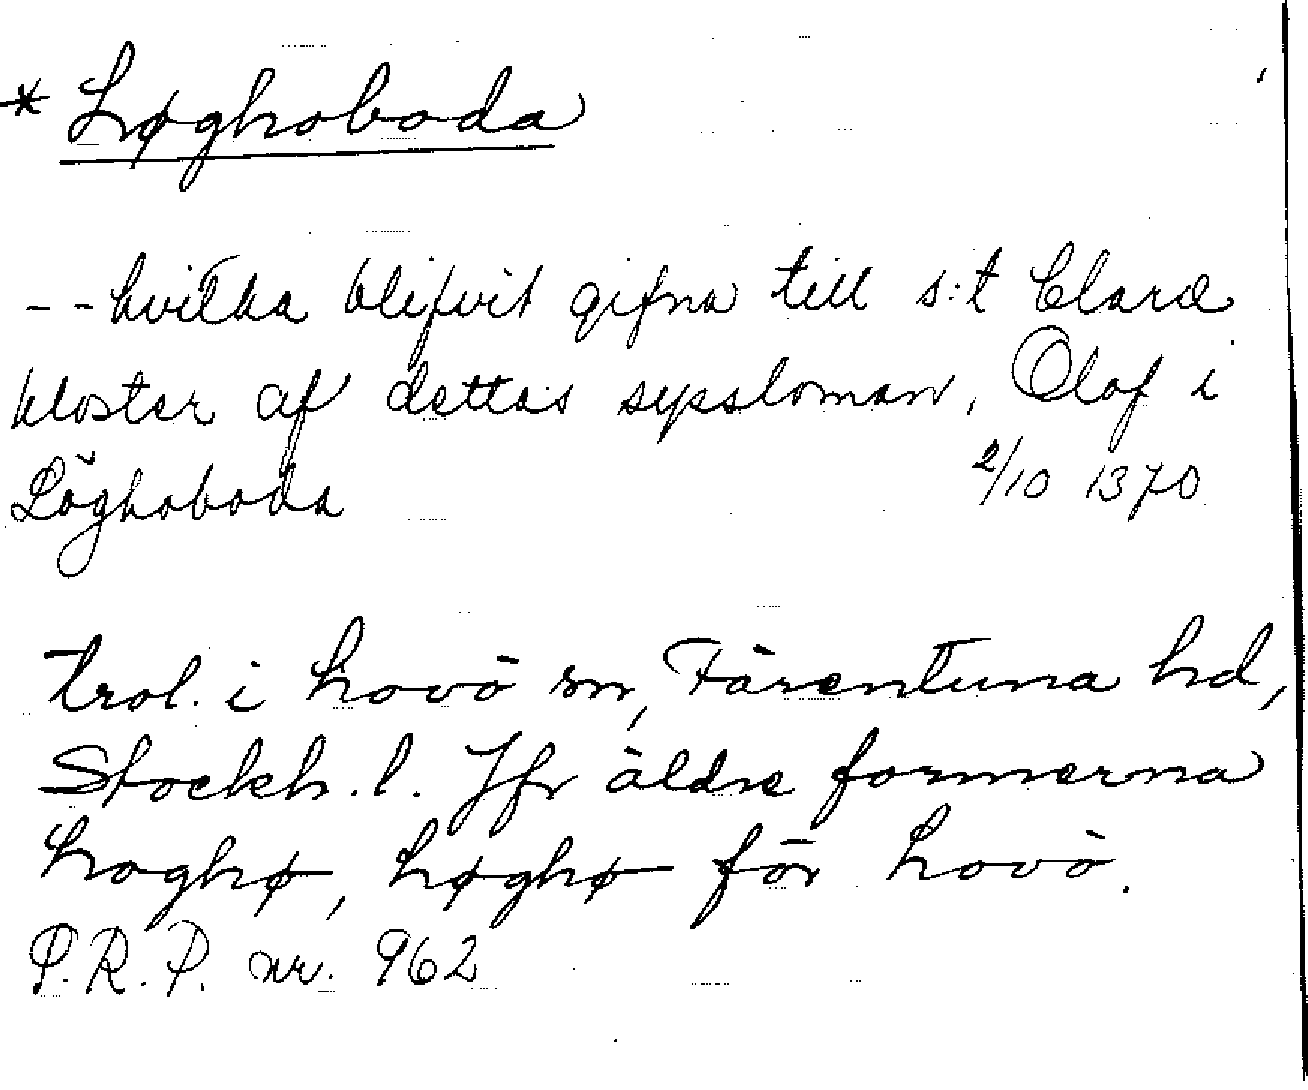 * Løghoboda
- - hvilka blifvit gifna till s:t Claræ
kloster af dettas syssloman, Olof i
Löghoboda 2/10 1370
trol. i Lovö sn, Färentuna hd,
Stockh. l. Jfr äldre formerna
Loghø, Løghø för Lovö.
P.R.P. nr. 962